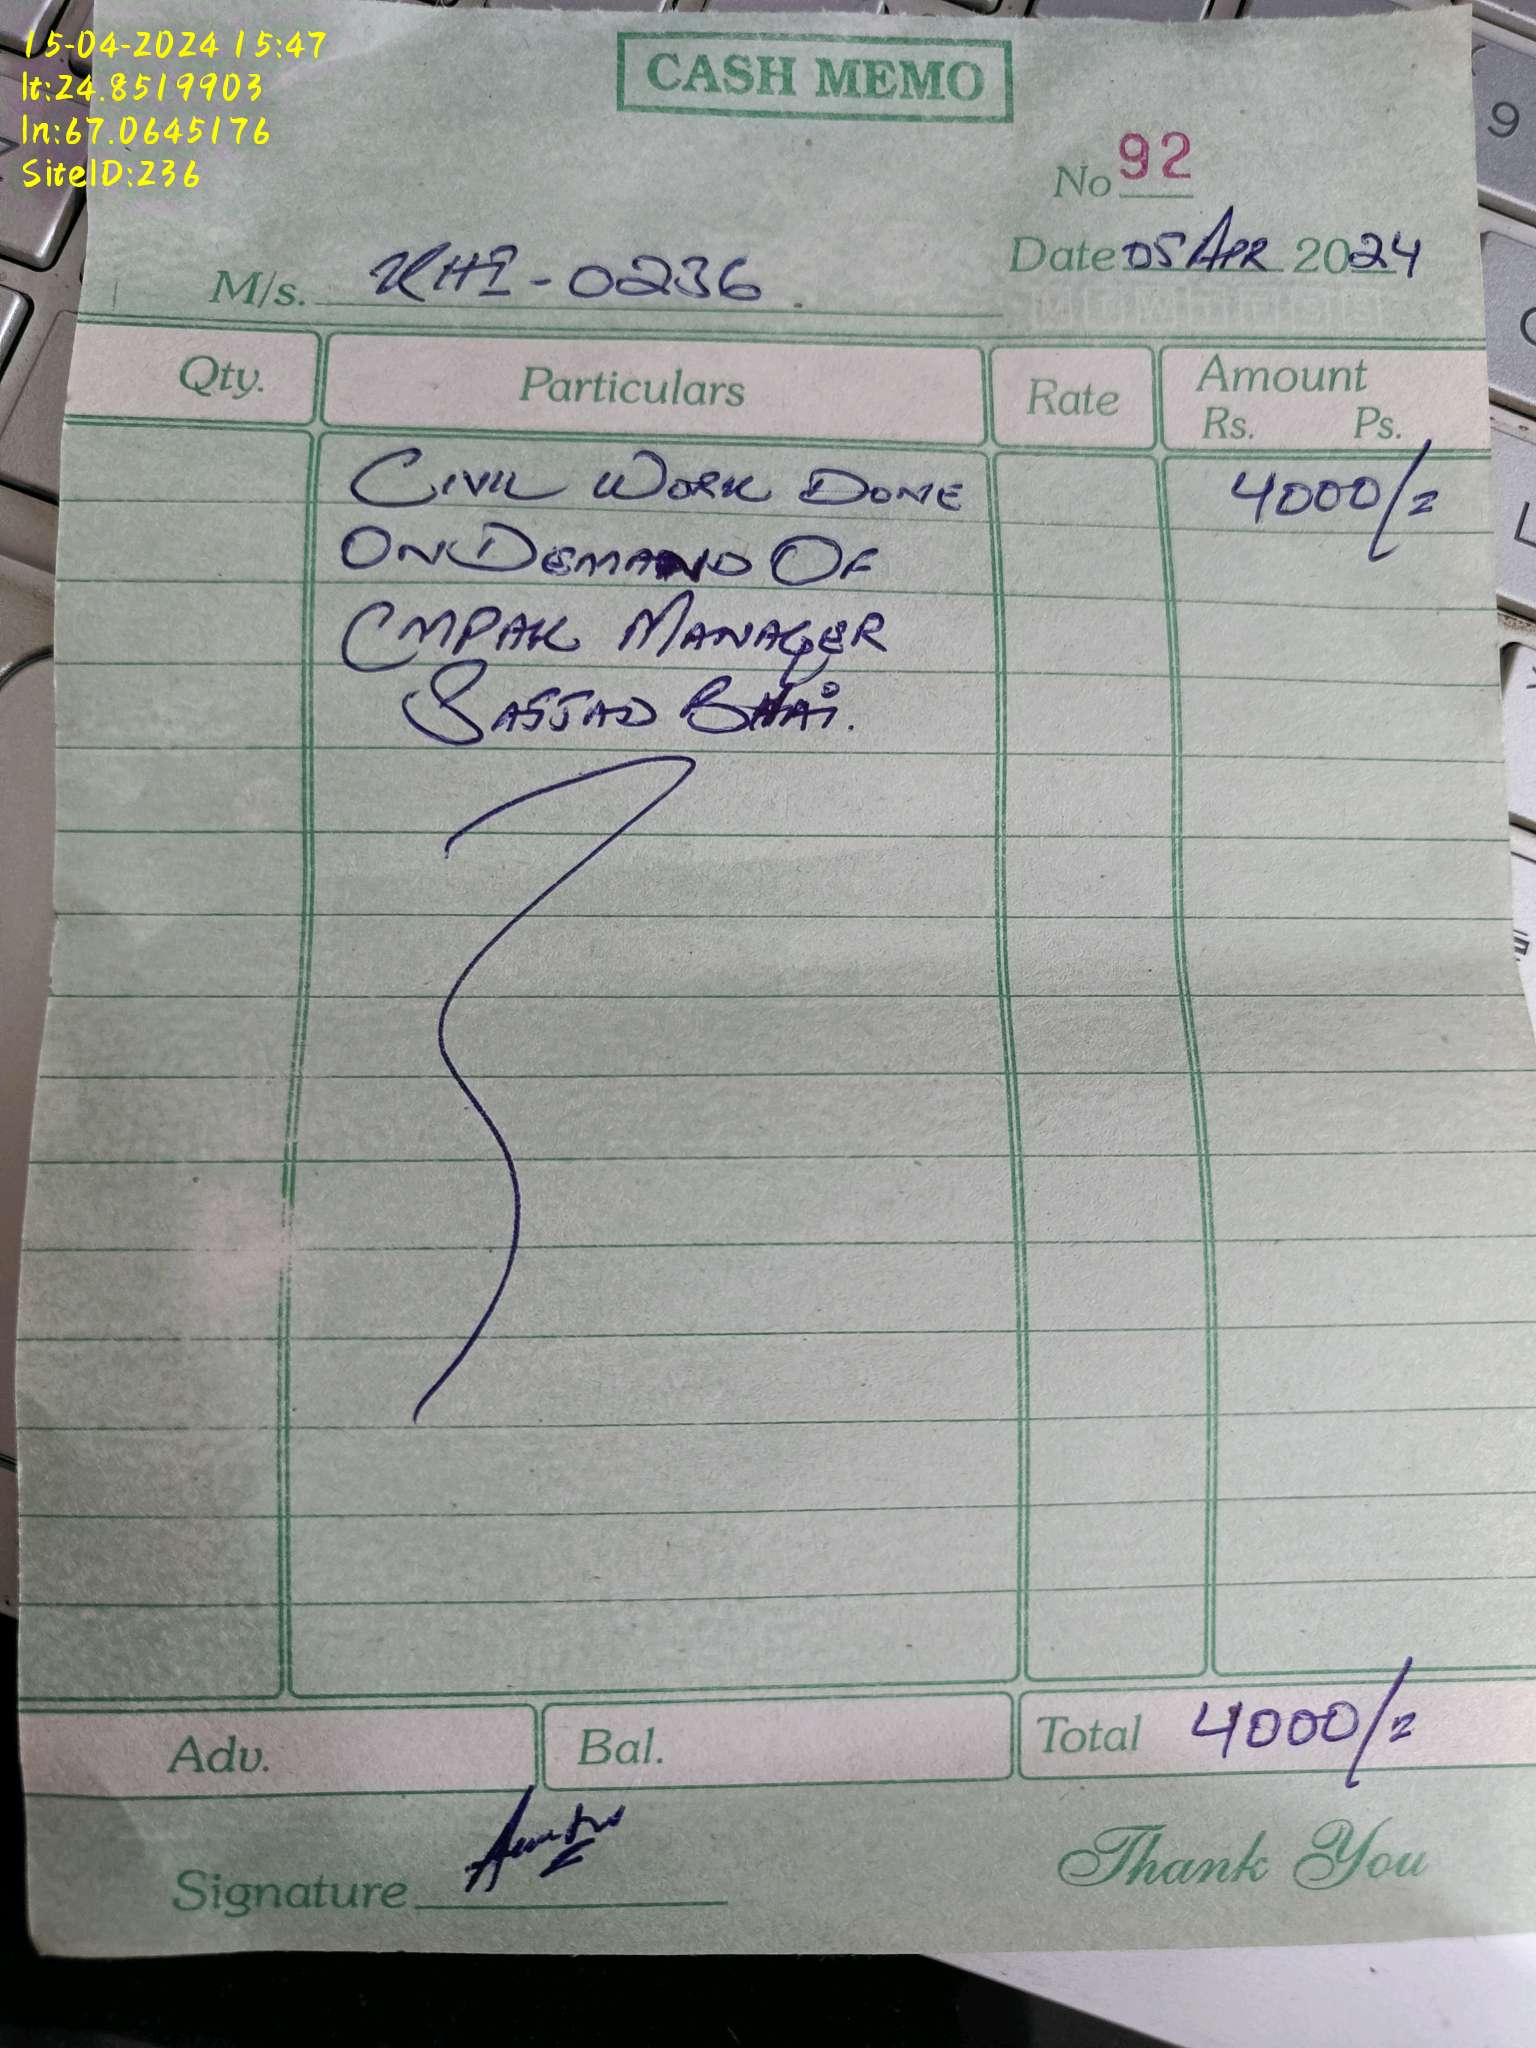 15-04-2024 15:47
lt:24.8519903
ln:67.0645176
SiteID:236
CASH MEMO
No 92
Date 05 APR 2024
M/s. KHI-0236
Qty. Particulars Rate Amount
Rs. Ps.
CIVIL WORK DONE 4000/=
ON DEMAND OF
CMPAK MANAGER
SAJJAD BHAI.
Adv. Bal. Total 4000/=
Signature
Thank You